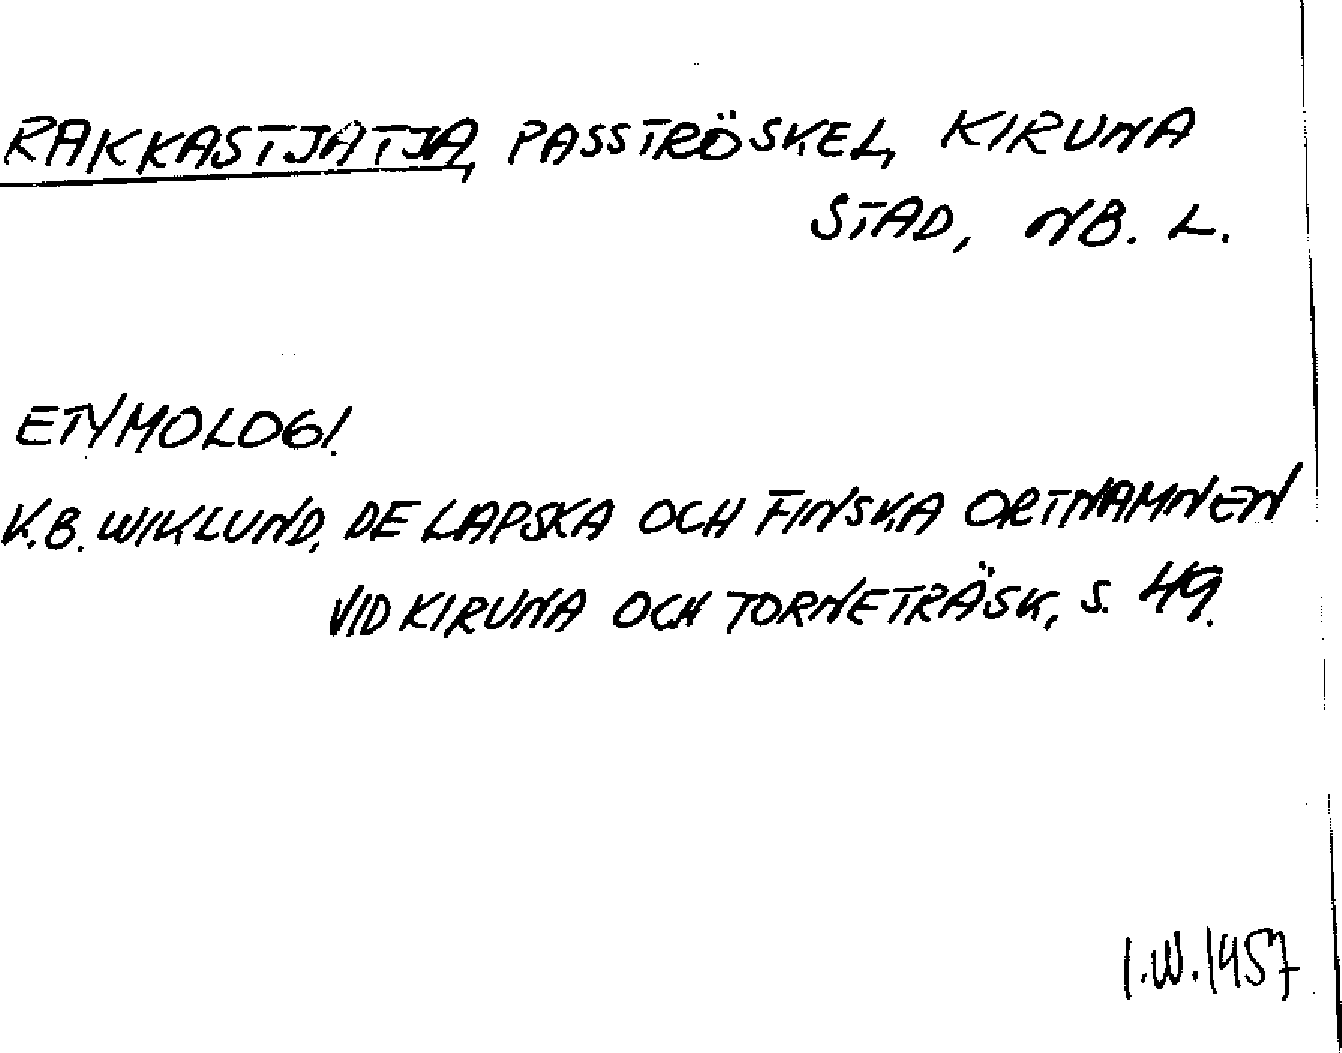 RAKKASTJATJA, PASSTRÖSKEL, KIRUNA
STAD, NB. L.
ETYMOLOGI.
K.B. WIKLUND, DE LAPSKA OCH FINSKA ORTNAMNEN
VID KIRUNA OCH TORNETRÄSK, S. 49.
I.W. 1957